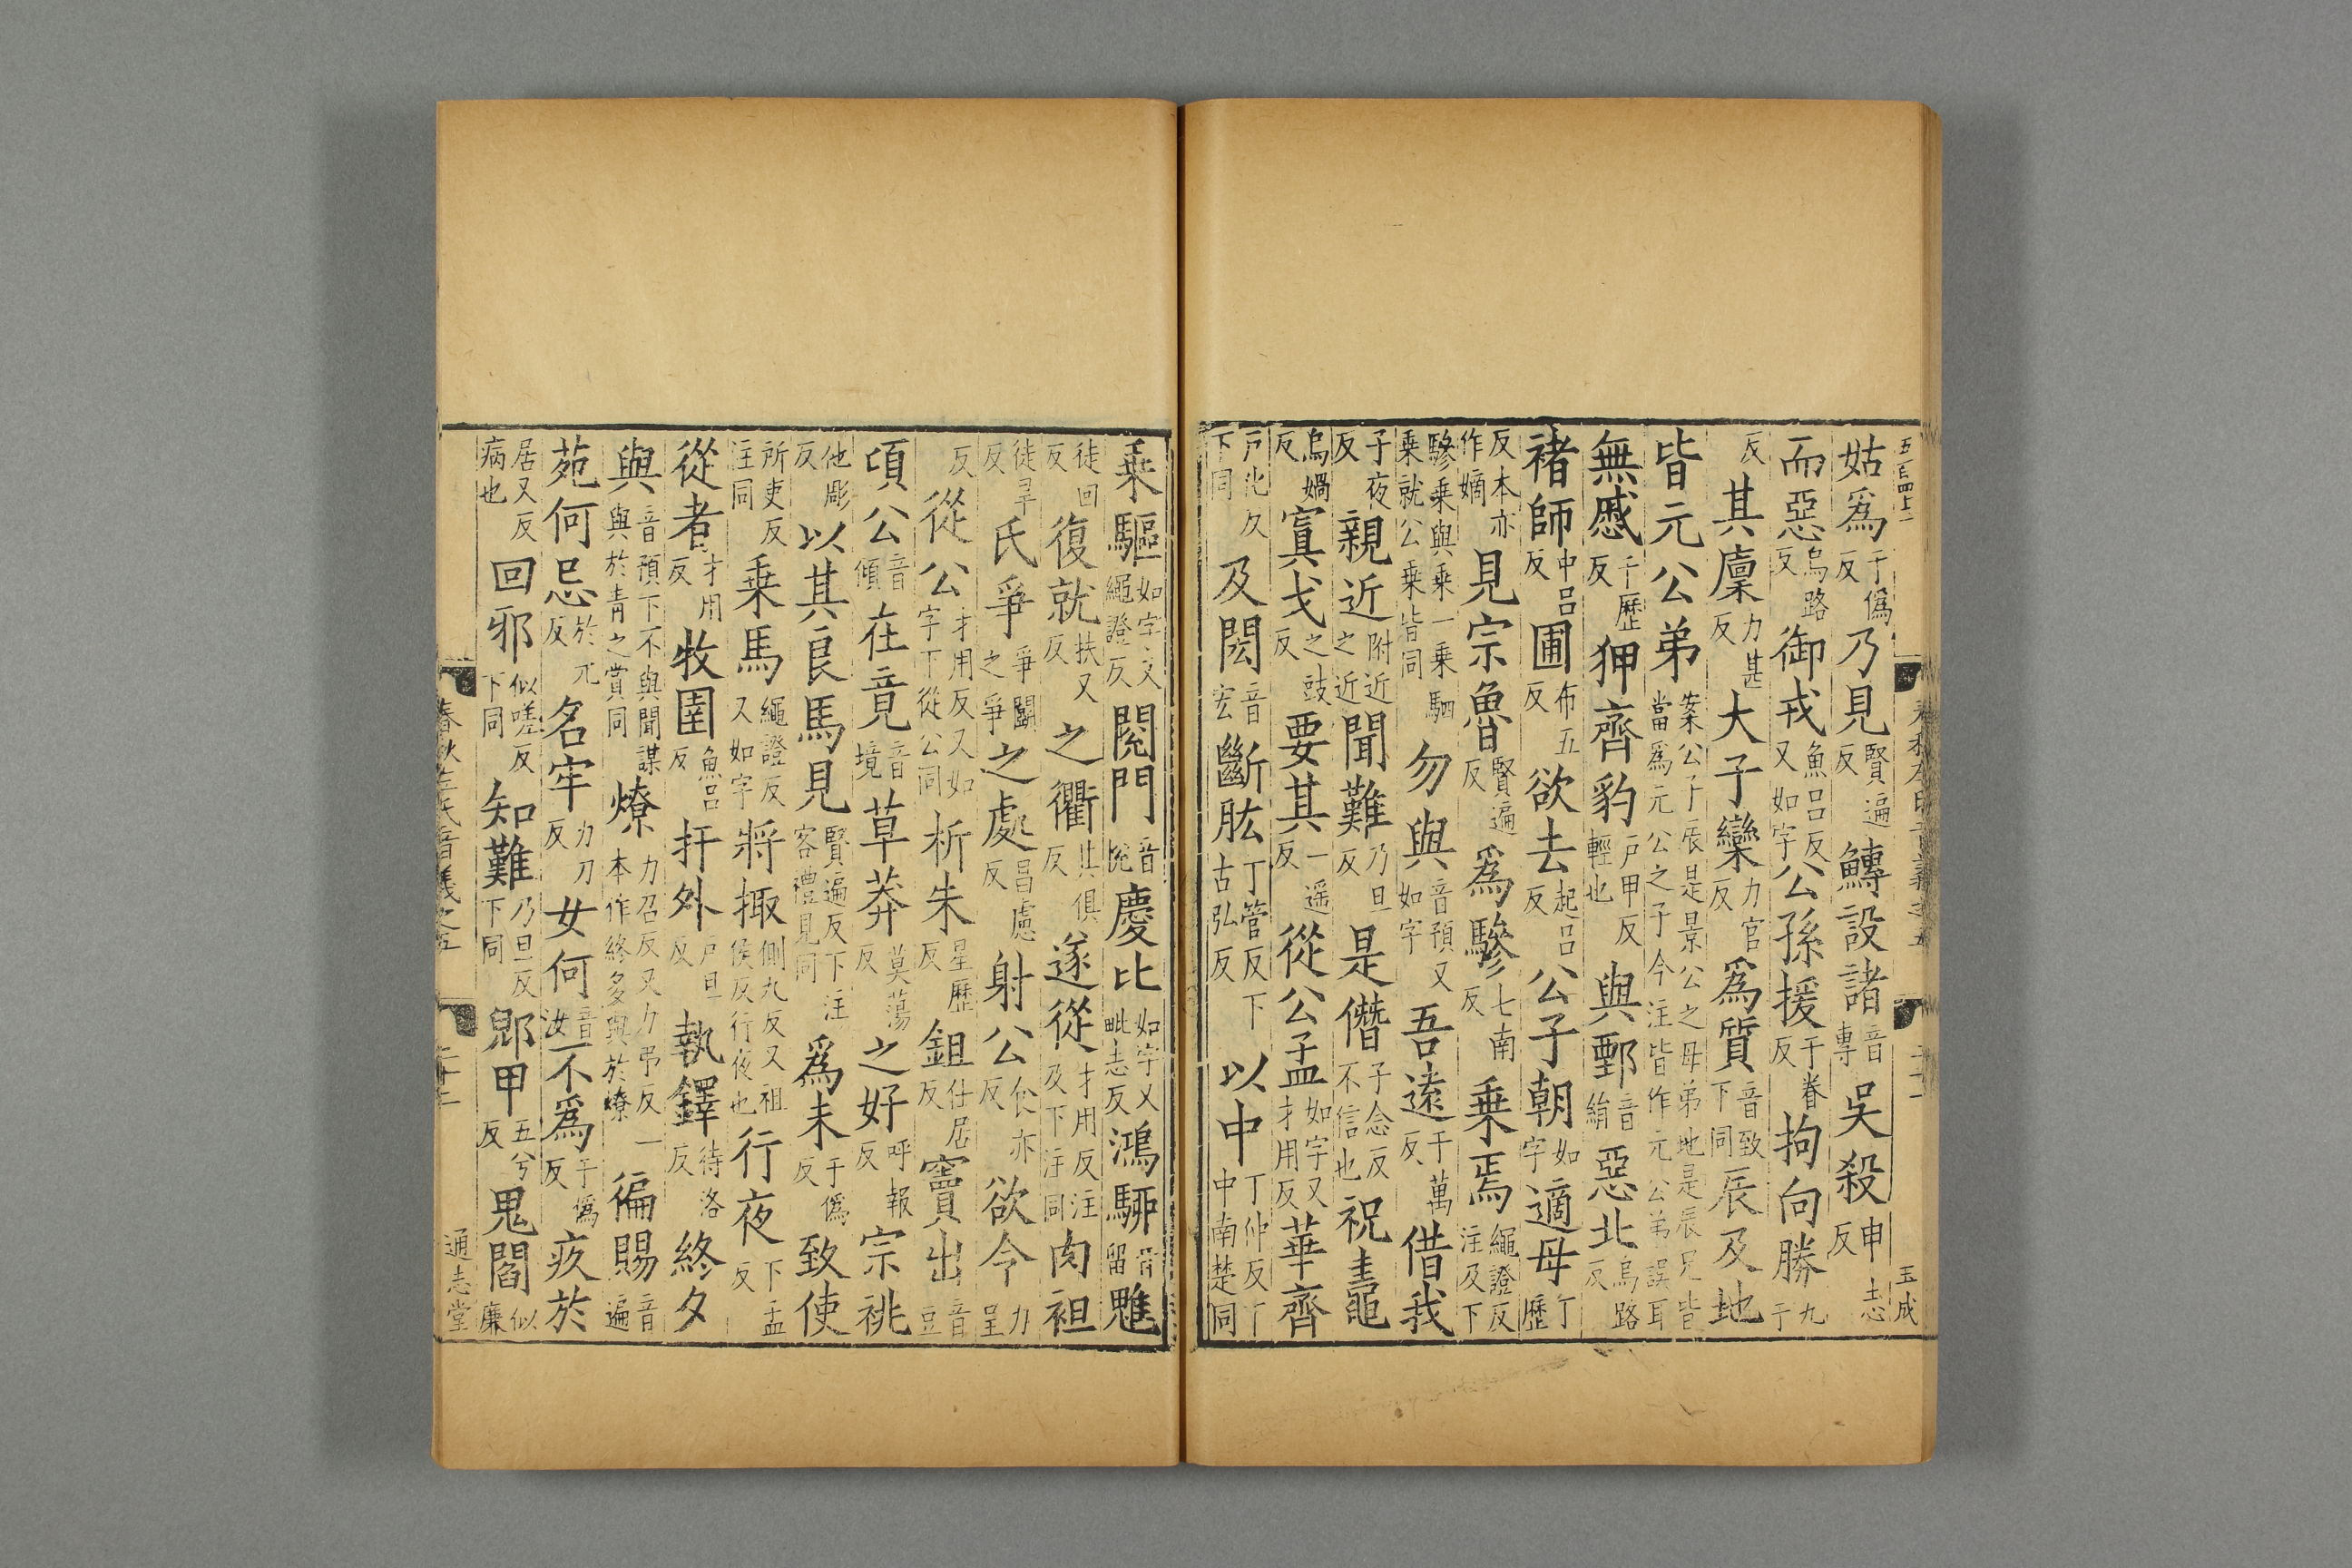 五百四十一
春秋左氏音義之五
二十一
王成
姑爲于僞反乃見賢遍反鱄設諸音專吳殺申志反
而惡烏路反御戎魚呂反又如字公孫援于眷反拘向勝九于
反其廩力甚反大子欒力官反爲質音致下同辰及地
皆元公弟案公子辰是景公之母弟地是辰兄皆當爲元公之子今注皆作元公弟誤耳
無慼千歷反狎齊豹戶甲反輕也與鄄音絹惡北烏路反
褚師中呂反圃布五反欲去起呂反公子朝如字適母丁歷
反本亦作嫡見宗魯賢遍反爲驂七南反乘焉繩證反注及下
驂乘與乘一乘駟乘就公乘皆同勿與音預又如字吾遠于萬反借我
子夜反親近附近之近聞難乃旦反是僭子念反不信也祝鼃
烏媧反寘戈之豉反要其一遥反從公孟如字又才用反華齊
戶化反下同及閎音宏斷肱丁管反下古弘反以中丁仲反下中南楚同
乘驅如字又繩證反閱門音悅慶比如字又毗志反鴻駵音留魋
徒回反復就扶又反之衢其俱反遂從才用反注及下注同肉袒
徒旱反氏爭爭鬭之爭之處昌慮反射公食亦反欲令力呈
反從公才用反又如字下從公同析朱星歷反鉏仕居反竇出音豆
頃公音傾在竟音境草莽莫蕩反之好呼報反宗祧
他彫反以其良馬見賢遍反下注客禮見同爲未于僞反致使
所吏反注同乘馬繩證反又如字將掫側九反又祖侯反行夜也行夜下孟反
從者才用反牧圉魚呂反扞外戶旦反執鐸待洛反終夕
與音預下不與聞謀與於青之賞同燎力召反又力弔反一本作終夕與於燎徧賜音遍
苑何忌於元反名牢力刀反女何音汝不爲于僞反疚於
居又反病也回邪似嗟反下同知難乃旦反下同郳甲五兮反鬼閻似廉
春秋左氏音義之五
二十二
通志堂